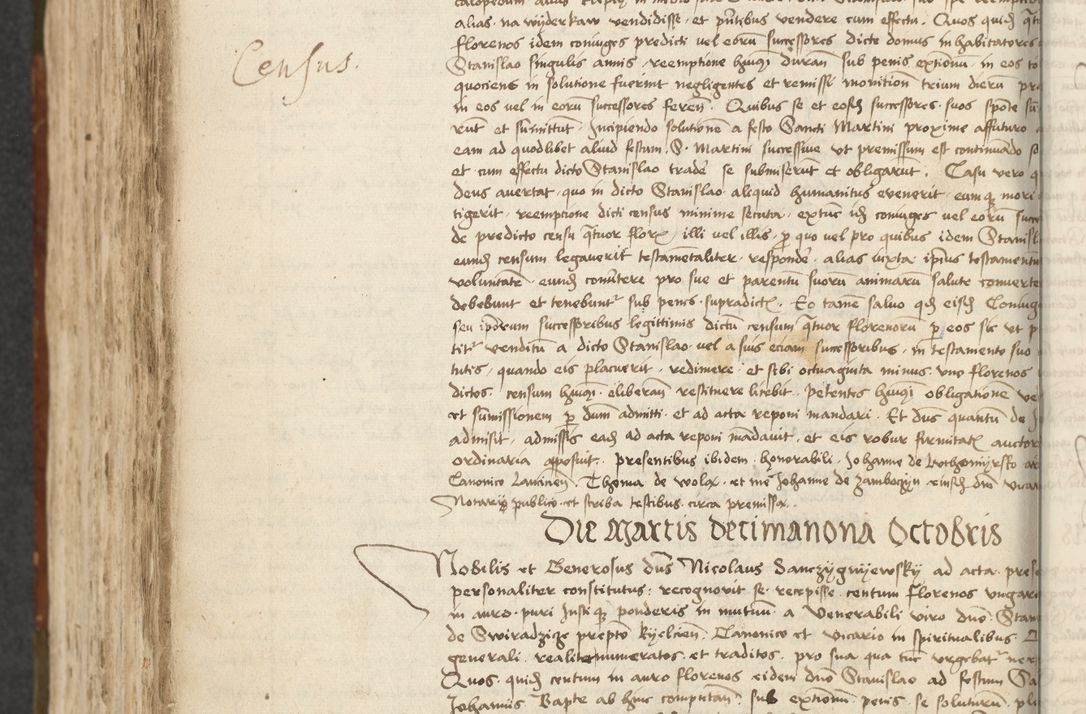 alias na wyderkaw vendidisse et pntibus vendere cum effectu Quos quidm
Census.
florenos idem coniuges predicti vel eorum successores dicte domus inhabitatores
Stanislao singulis annis reemptione huiusmodi duran sub penis extionum in eos
quociens in solutione fuerint negligentes et remissi monition trium dierum
in eos vel in eorum successores feren Quibus se et eosdem successores suos sponte
runt et summittunt Incipiendo solutionem a festo Sancti Martini proxime affuturo
eam ad quodlibet aliud festum S. Martini successive ut premissum est continuando
et cum effectu dicto Stanislao tradere se submiserunt et obligarunt. Casu vero
deus avertat quo in dicto Stanislao aliquid humanitus evenerit eumque mori
tigerit reemptione dicti census minime secuta extunc iidem coniuges vel eorum
de predicto censu quatuor florenorum illi vel illis per quo vel pro quibus idem Stanisl
eundem censum legaverit testamentaliter respondere alias iuxta ipsius testamentum
voluntatem eundem convertere pro sue et parentum suorum animarum salute converte
debebunt et tenebuntur sub penis supradictis Eo tamen salvo quod eisdem Coniug
seu ipsorum successoribus legittimis dictum censum quatuor florenorum per eos sic ut p
titur venditum a dicto Stanislao vel a suis eciam successoribus in testamento suo
tutis quando eis placuerit redimere et sibi octuaginta minus uno florenos
dictos censum huiusmodi eliberan restituere licebit Petentes huiusmodi obligationem
et summissionem per dnum admitti et ad acta reponi mandari Et dns quantum de
admisit admissis eadem ad acta reponi mandavit et eis robur firmitatis auctor
ordinaria apposuit presentibus ibidem honorabili Johanne de
Canonico Thoma de et me Johanne de Zamboczyn eiusdem dni vica
Notario publico et scriba testibus circa premissa
Die Martis decimanona Octobris
Nobilis et Generosus dns Nicolaus Sanczygnyewsky ad acta pres
personaliter constitutus recognovit se recepisse centum florenos ungari
in auro puri Iustique ponderis in mutuum a Venerabili viro dno Stan
de Swiradzicze prepto kyelcien Canonico et vicario in spiritualibus
generali realiter numeratos et traditos pro sua qua tunc urgebatur
Quos quidem centum in auro florenos eidem dno Stanislao ad festum Sa
Johannis Bapte ab hinc computan sub extionum penis se soluturum